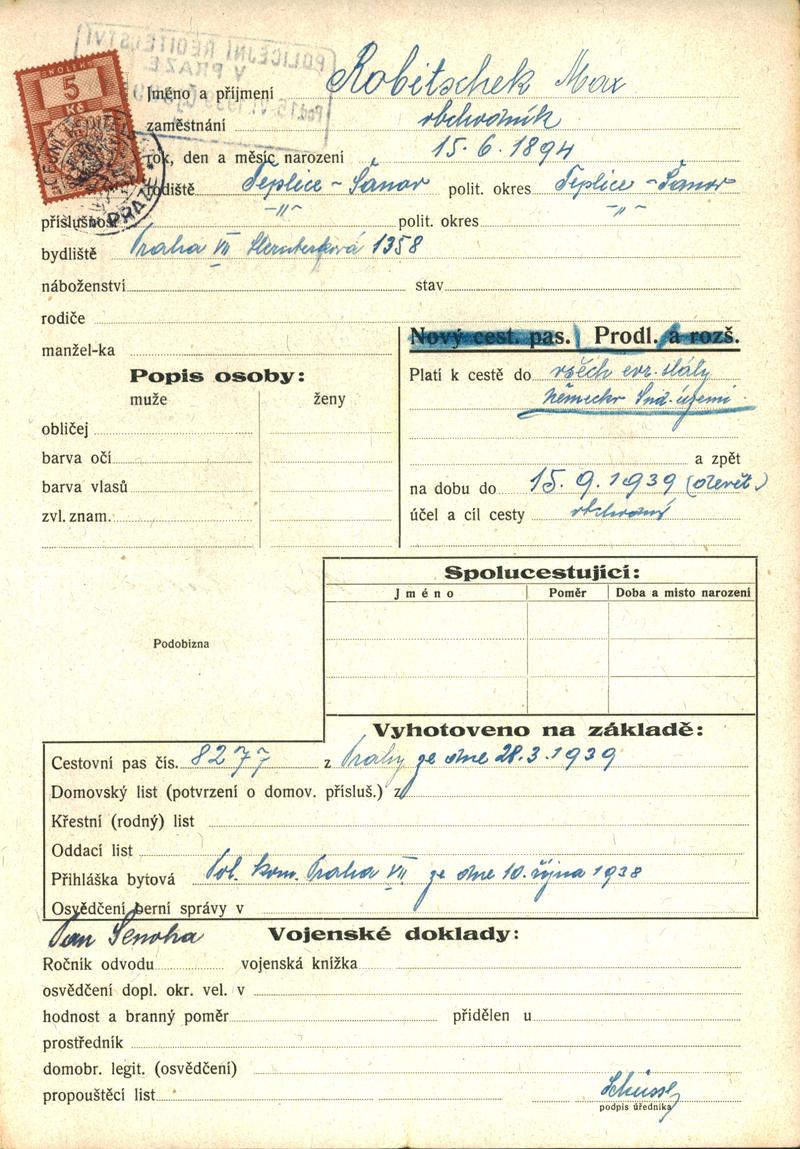 POLICEJNÍ ŘEDITELSTVÍ
V PRAZE
KOLEK
5
Kč
PRAZE
Jméno a příjmení Robitschek Max
zaměstnání obchodník
rok, den a měsíc narození 15. 6. 1894
rodiště Teplice - Šanov polit. okres Teplice - Šanov
příslušnost -"- polit. okres -"-
bydliště Praha VII 1358
náboženství stav
rodiče
manžel-ka
Nový cest. pas. Prodl. a rozš.
Popis osoby:
muže ženy
obličej
barva očí
barva vlasů
zvl. znam.
Platí k cestě do všech evr. státy
německr Snd. území.
a zpět
na dobu do 15. 9. 1939
účel a cíl cesty obchodní
Spolucestující:
Jméno Poměr Doba a místo narození
Podobizna
Vyhotoveno na základě:
Cestovní pas čís. 8277 z Prahy ze dne 28. 3. 1939
Domovský list (potvrzení o domov. přísluš.) z
Křestní (rodný) list
Oddací list
Přihláška bytová Pol. kom. Praha VII ze dne 10. října 1938
Osvědčení berní správy v
Pan Šenoha
Vojenské doklady:
Ročník odvodu vojenská knížka
osvědčení dopl. okr. vel. v
hodnost a branný poměr přidělen u
prostředník
domobr. legit. (osvědčení)
propouštěcí list
podpis úředníka